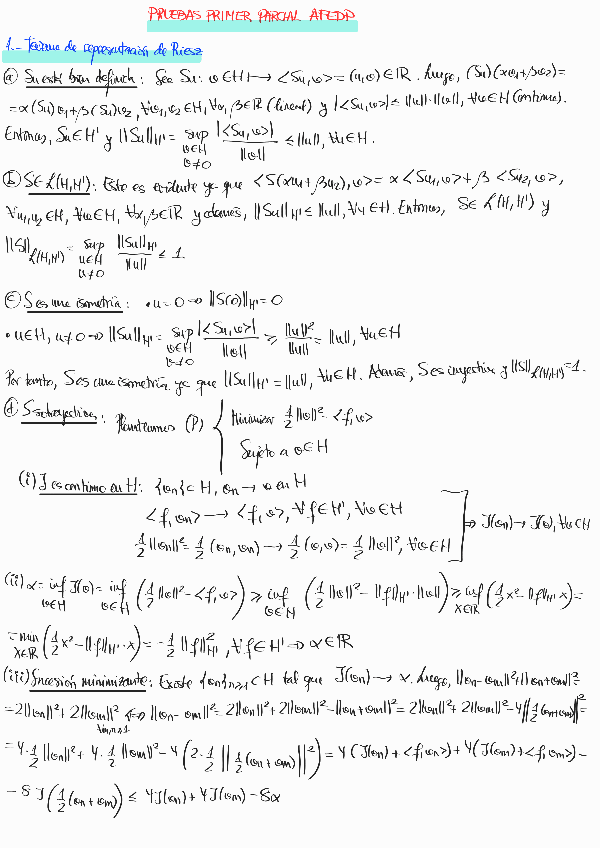 PRUEBAS PRIMER PARCIAL ATEDP
1.- Teorema de representación de Riesz
(a) Su está bien definida: Sea Su: v∈H ↦ <Su,v> = (u,v)∈ℝ. Luego, (Su)(αv₁+βv₂)=
=α(Su)v₁+β(Su)v₂, ∀v₁,v₂∈H, ∀α,β∈ℝ (lineal) y |<Su,v>| ≤ ||u||·||v||, ∀v∈H (continua).
Entonces, Su∈H' y ||Su||_H' = sup_{v∈H, v≠0} |<Su,v>| / ||v|| ≤ ||u||, ∀u∈H.
(b) S∈ℒ(H,H'): Esto es evidente ya que <S(αu₁+βu₂),v> = α<Su₁,v>+β<Su₂,v>,
∀u₁,u₂∈H, ∀v∈H, ∀α,β∈ℝ y además, ||Su||_H' ≤ ||u||, ∀u∈H. Entonces, S∈ℒ(H,H') y
||S||_ℒ(H,H') = sup_{u∈H, u≠0} ||Su||_H' / ||u|| ≤ 1.
(c) S es una isometría: • u=0 ⇒ ||S(0)||_H' = 0
• u∈H, u≠0 ⇒ ||Su||_H' = sup_{v∈H, v≠0} |<Su,v>| / ||v|| ≥ ||u||² / ||u|| = ||u||, ∀u∈H
Por tanto, S es una isometría ya que ||Su||_H' = ||u||, ∀u∈H. Además, S es inyectiva y ||S||_ℒ(H,H') = 1.
(d) S sobreyectiva: Planteamos (P) { Minimizar 1/2 ||v||² - <f,v>
Sujeto a v∈H
(i) J es continua en H: {vn}⊂H, vn → v en H
<f,vn> → <f,v>, ∀f∈H', ∀v∈H
1/2 ||vn||² = 1/2 (vn,vn) → 1/2 (v,v) = 1/2 ||v||², ∀v∈H ] ⇒ J(vn) → J(v), ∀v∈H
(ii) α = inf_{v∈H} J(v) = inf_{v∈H} (1/2 ||v||² - <f,v>) ≥ inf_{v∈H} (1/2 ||v||² - ||f||_H' ||v||) ≥ inf_{x∈ℝ} (1/2 x² - ||f||_H' x) =
= min_{x∈ℝ} (1/2 x² - ||f||_H' · x) = -1/2 ||f||²_H', ∀f∈H' ⇒ α∈ℝ
(iii) Sucesión minimizante: Existe {vn}n≥1 ⊂ H tal que J(vn) → α. Luego, ||vn-vm||²+||vn+vm||² =
= 2||vn||² + 2||vm||² ⇔_{∀n,m≥1} ||vn-vm||² = 2||vn||² + 2||vm||² - ||vn+vm||² = 2||vn||² + 2||vm||² - 4||1/2 (vn+vm)||² =
= 4·1/2 ||vn||² + 4·1/2 ||vm||² - 4(2·1/2 ||1/2 (vn+vm)||²) = 4(J(vn)+<f,vn>) + 4(J(vm)+<f,vm>) -
- 8J(1/2 (vn+vm)) ≤ 4J(vn) + 4J(vm) - 8α